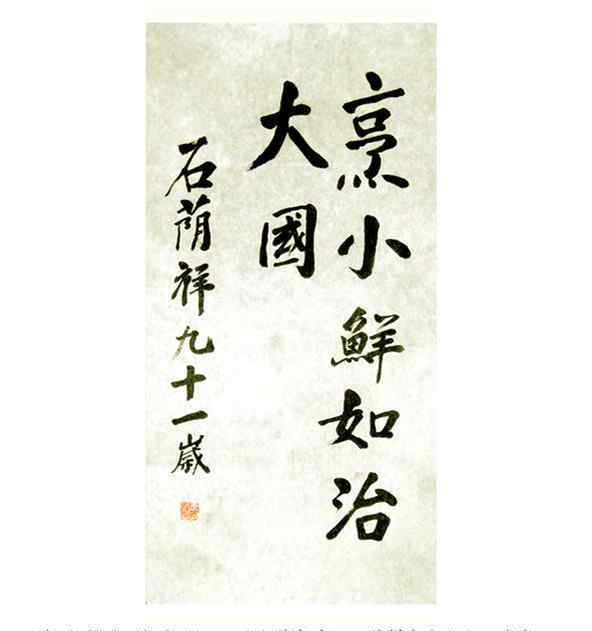 烹小鮮如治
大國
石荫祥九十一歲